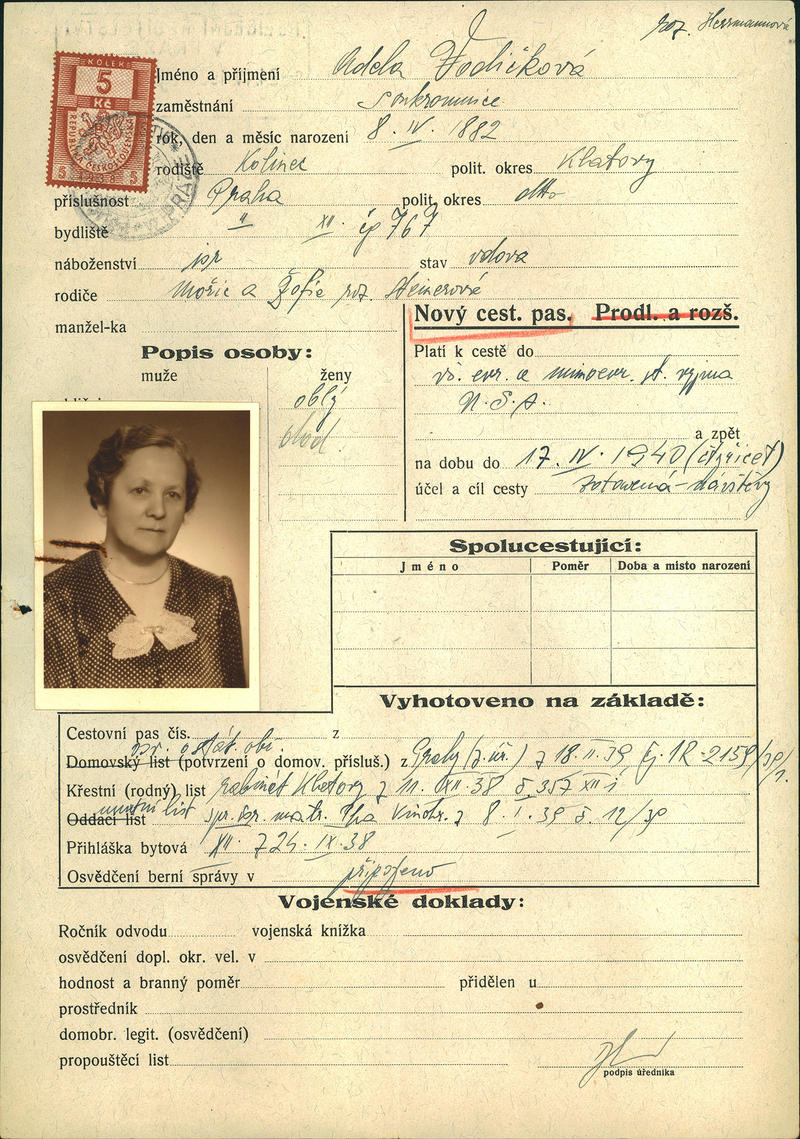 roz. Herrmannová
KOLEK
5
Kč
REPUBLIKA ČESKOSLOVENSKÁ
5 5
Jméno a příjmení Adela Vodičková
zaměstnání soukromnice
rok, den a měsíc narození 8. IV. 1882
rodiště Kolinec polit. okres Klatovy
příslušnost Praha polit. okres dtto
bydliště " XII. čp 767
náboženství isr stav vdova
rodiče Mořic a Žofie roz. Steinerová
manžel-ka
Nový cest. pas. Prodl. a rozš.
Popis osoby:
muže ženy
oblý
Platí k cestě do
vš. evr. a mimoevr. st. vyjma
a zpět
na dobu do 17. IV. 1940 (čtyřicet)
účel a cíl cesty zotavená - návštěvy
Spolucestující:
Jméno Poměr Doba a místo narození
Vyhotoveno na základě:
Cestovní pas čís. z
Domovský list (potvrzení o domov. přísluš.) z Prahy z 18. II. 39 čj. 1R-2159/39/1.
Křestní (rodný) list rabinát Klatovy z 11. XII. 38 č. 357
úmrtní list
Oddací list matr. Pha Vinohr. z 8. I. 39 č. 12/39
Přihláška bytová XII. z 24. IX. 38
Osvědčení berní správy v připojeno
Vojenské doklady:
Ročník odvodu vojenská knížka
osvědčení dopl. okr. vel. v
hodnost a branný poměr přidělen u
prostředník
domobr. legit. (osvědčení)
propouštěcí list
podpis úředníka